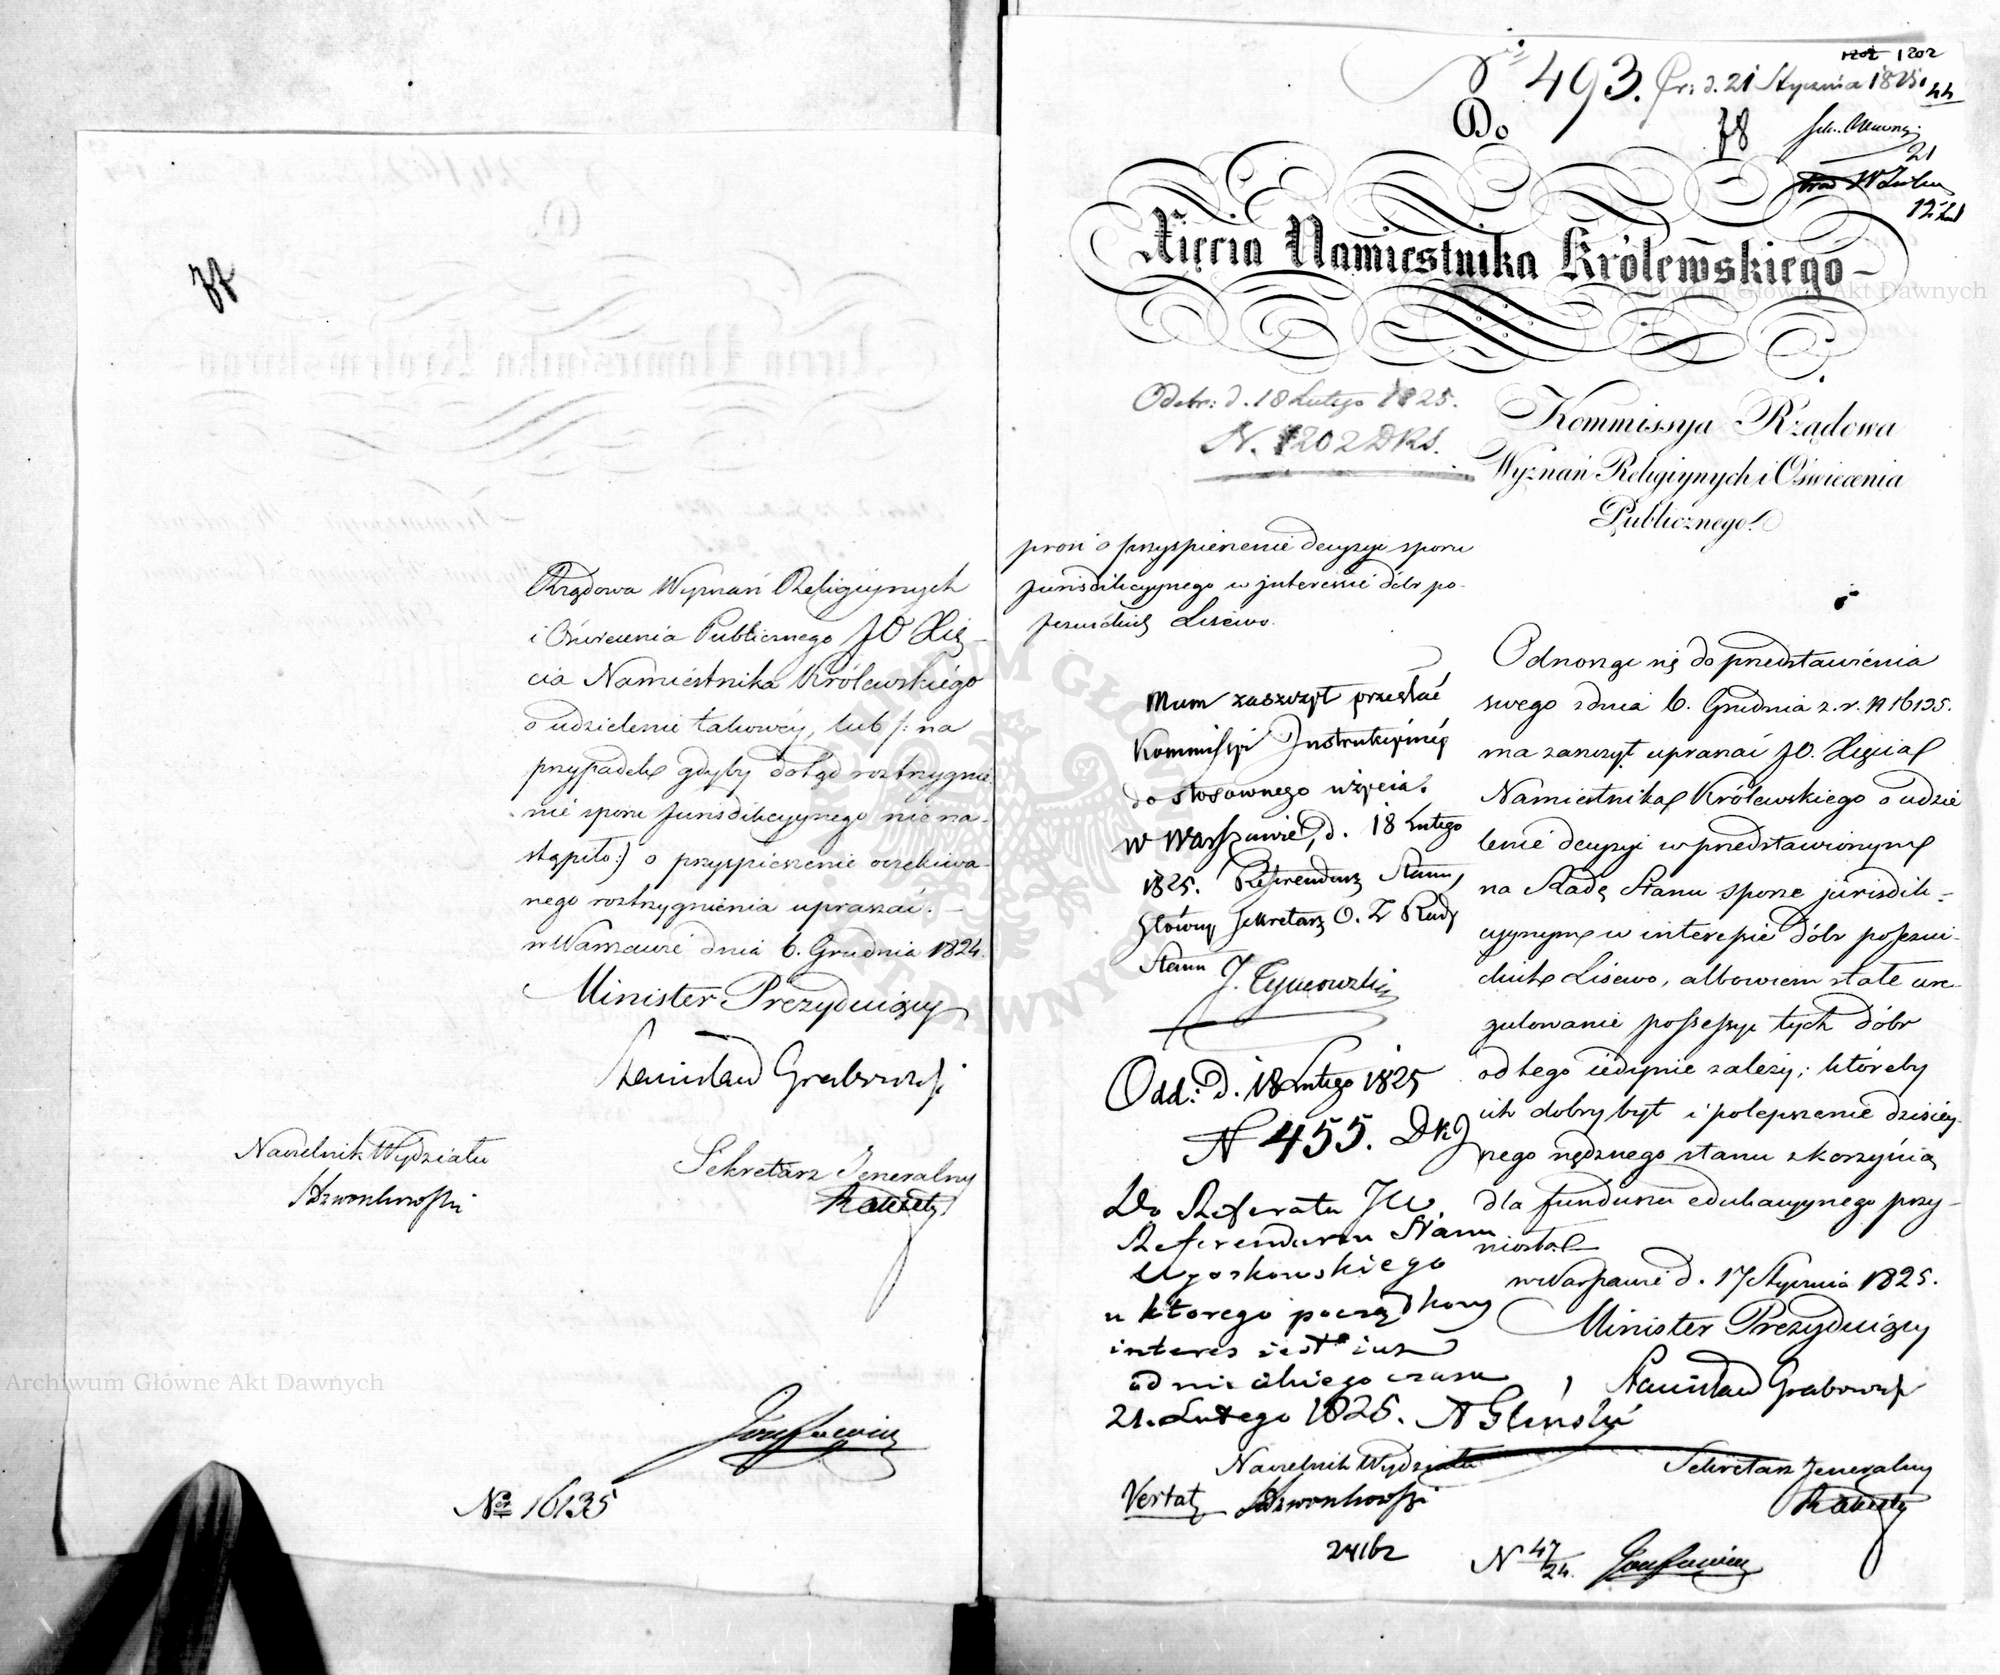 Rządowa Wyznań Religiynych
i Oświecenia Publicznego JO Xię-
cia Namiestnika Królewskiego
o udzielenie takowéy, lub /: na
przypadek gdyby dotąd roztrzygnie-
nie sporu Jurisdikcyynego nie na-
stąpiło :/ o przyspieszenie oczekiwa-
nego roztrzygnienia upraszać. -
w Warszawie dnia 6. Grudnia 1824.
Minister Prezyduiący
Stanisław Grabowski
Naczelnik Wydziału
Sekretarz Jeneralny
No 16135
Archiwum Główne Akt Dawnych
1202 1202
N 493. Pr: d. 21 Stycznia 1825.
44
78
21
Do
Xięcia Namiestnika Królewskiego
Archiwum Główne Akt Dawnych
Odebr: d. 18 Lutego 1825.
N. 1202 DKS.
Kommissya Rządowa
Wyznań Religiynych i Oświecenia
Publicznego.
prosi o przyspieszenie decyzyi sporu
jurisdikcyynego w interessie dóbr po-
jezuickich Lisewo.
Mam zaszczyt przesłać
Kommissyi Instrukcyinéy
do stosownego użycia.
w Warszawie, d. 18 Lutego
1825. Referendarz Stanu,
Główny Sekretarz O. Z Rady
Stanu
Odd: d. 18 Lutego 1825
N 455. DKJ
Do Referatu JW.
Referendarza Stanu
u ktorego początkowy
interes iest iuz
od nieiakiego czasu
21. Lutego 1825.
Odnosząc się do przedstawienia
swego z dnia 6. Grudnia z. r. N 16135.
ma zaszczyt upraszać JO. Xięcia
Namiestnika Królewskiego o udzie
lenie decyzyi w przedstawionym
na Radę Stanu sporze jurisdik-
cyynym w interessie dóbr pojezui-
ckich Lisewo, albowiem stałe ure-
gulowanie possessyi tych dóbr
od tego iedynie zależy; któreby
ich dobry byt i polepszenie dzisiey-
nego nędznego stanu z korzyścią
dla funduszu edukacyynego przy-
niosło.
w Warszawie d. 17 Stycznia 1825.
Minister Prezyduiący
Stanisław Grabowski
Naczelnik Wydziału
Sekretarz Jeneralny
Vertatur
24162
N 47/24.